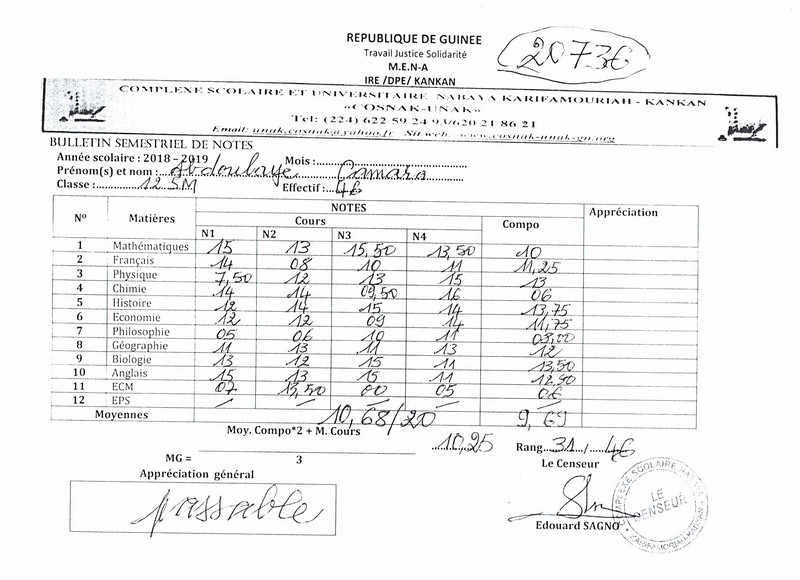 REPUBLIQUE DE GUINEE
Travail Justice Solidarité
M.E.N-A
IRE /DPE/ KANKAN
20736
COMPLEXE SCOLAIRE ET UNIVERSITAIRE NABAYA KARIFAMOURIAH - KANKAN
«COSNAK-UNAK»
Tel: (224) 622 59 24 93/620 21 86 21
Email: unak.cosnak@yahoo.fr Sit web: www.cosnak-unak-gn.org
BULLETIN SEMESTRIEL DE NOTES
Année scolaire : 2018 - 2019 Mois :
Prénom(s) et nom : Abdoulaye Camara
Classe : 12 SM Effectif : 46
N° Matières NOTES Appréciation
Cours Compo
N1 N2 N3 N4
1 Mathématiques 15 13 15,50 13,50 10
2 Français 14 08 10 11 11,25
3 Physique 7,50 12 13 15 13
4 Chimie 14 14 09,50 16 06
5 Histoire 12 14 15 14 13,75
6 Economie 12 12 09 14 11,75
7 Philosophie 05 06 10 11 08,00
8 Géographie 11 13 11 13 12
9 Biologie 13 12 15 11 13,50
10 Anglais 15 13 15 11 12.50
11 ECM 07 13,50 00 05 06
12 EPS / / / / /
Moyennes 10,68/20 9,69
Moy. Compo*2 + M. Cours 10,25 Rang 31 / 46
MG =
3
Le Censeur
Appréciation général
passable
Edouard SAGNO
COMPLEXE SCOLAIRE NABAYA
LE CENSEUR
KARIFAMORIAH-KANKAN